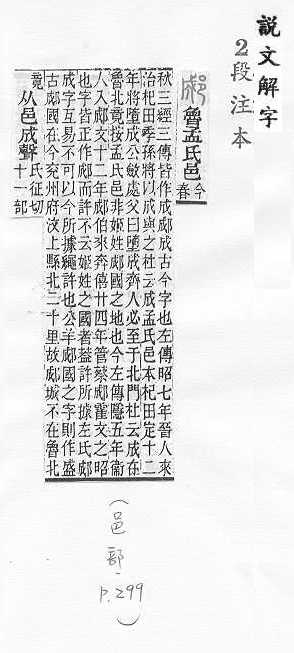 說文解字
2段注本
郕 魯孟氏邑 今春
秋三經三傳皆作成郕成古今字也左傳昭七年晉人來
治杞田季孫將以成與之杜云成孟氏邑本杞田定十二
年將墮成公斂處父曰墮成齊人必至于北門杜云成在
魯北竟按孟氏邑非姬姓郕國之地也今左傳隱五年衞
人入郕文十二年郕伯來奔僖廿四年管蔡郕霍文之昭
也字皆正作郕而許不云姬姓之國者葢許所據左氏郕
成字互易不可以今所據繩許也公羊郕國之字則作盛
古郕國在今兖州府汶上縣北二十里故郕城不在魯北
竟 从邑成聲 氏征切
十一部
(邑部 p.299)